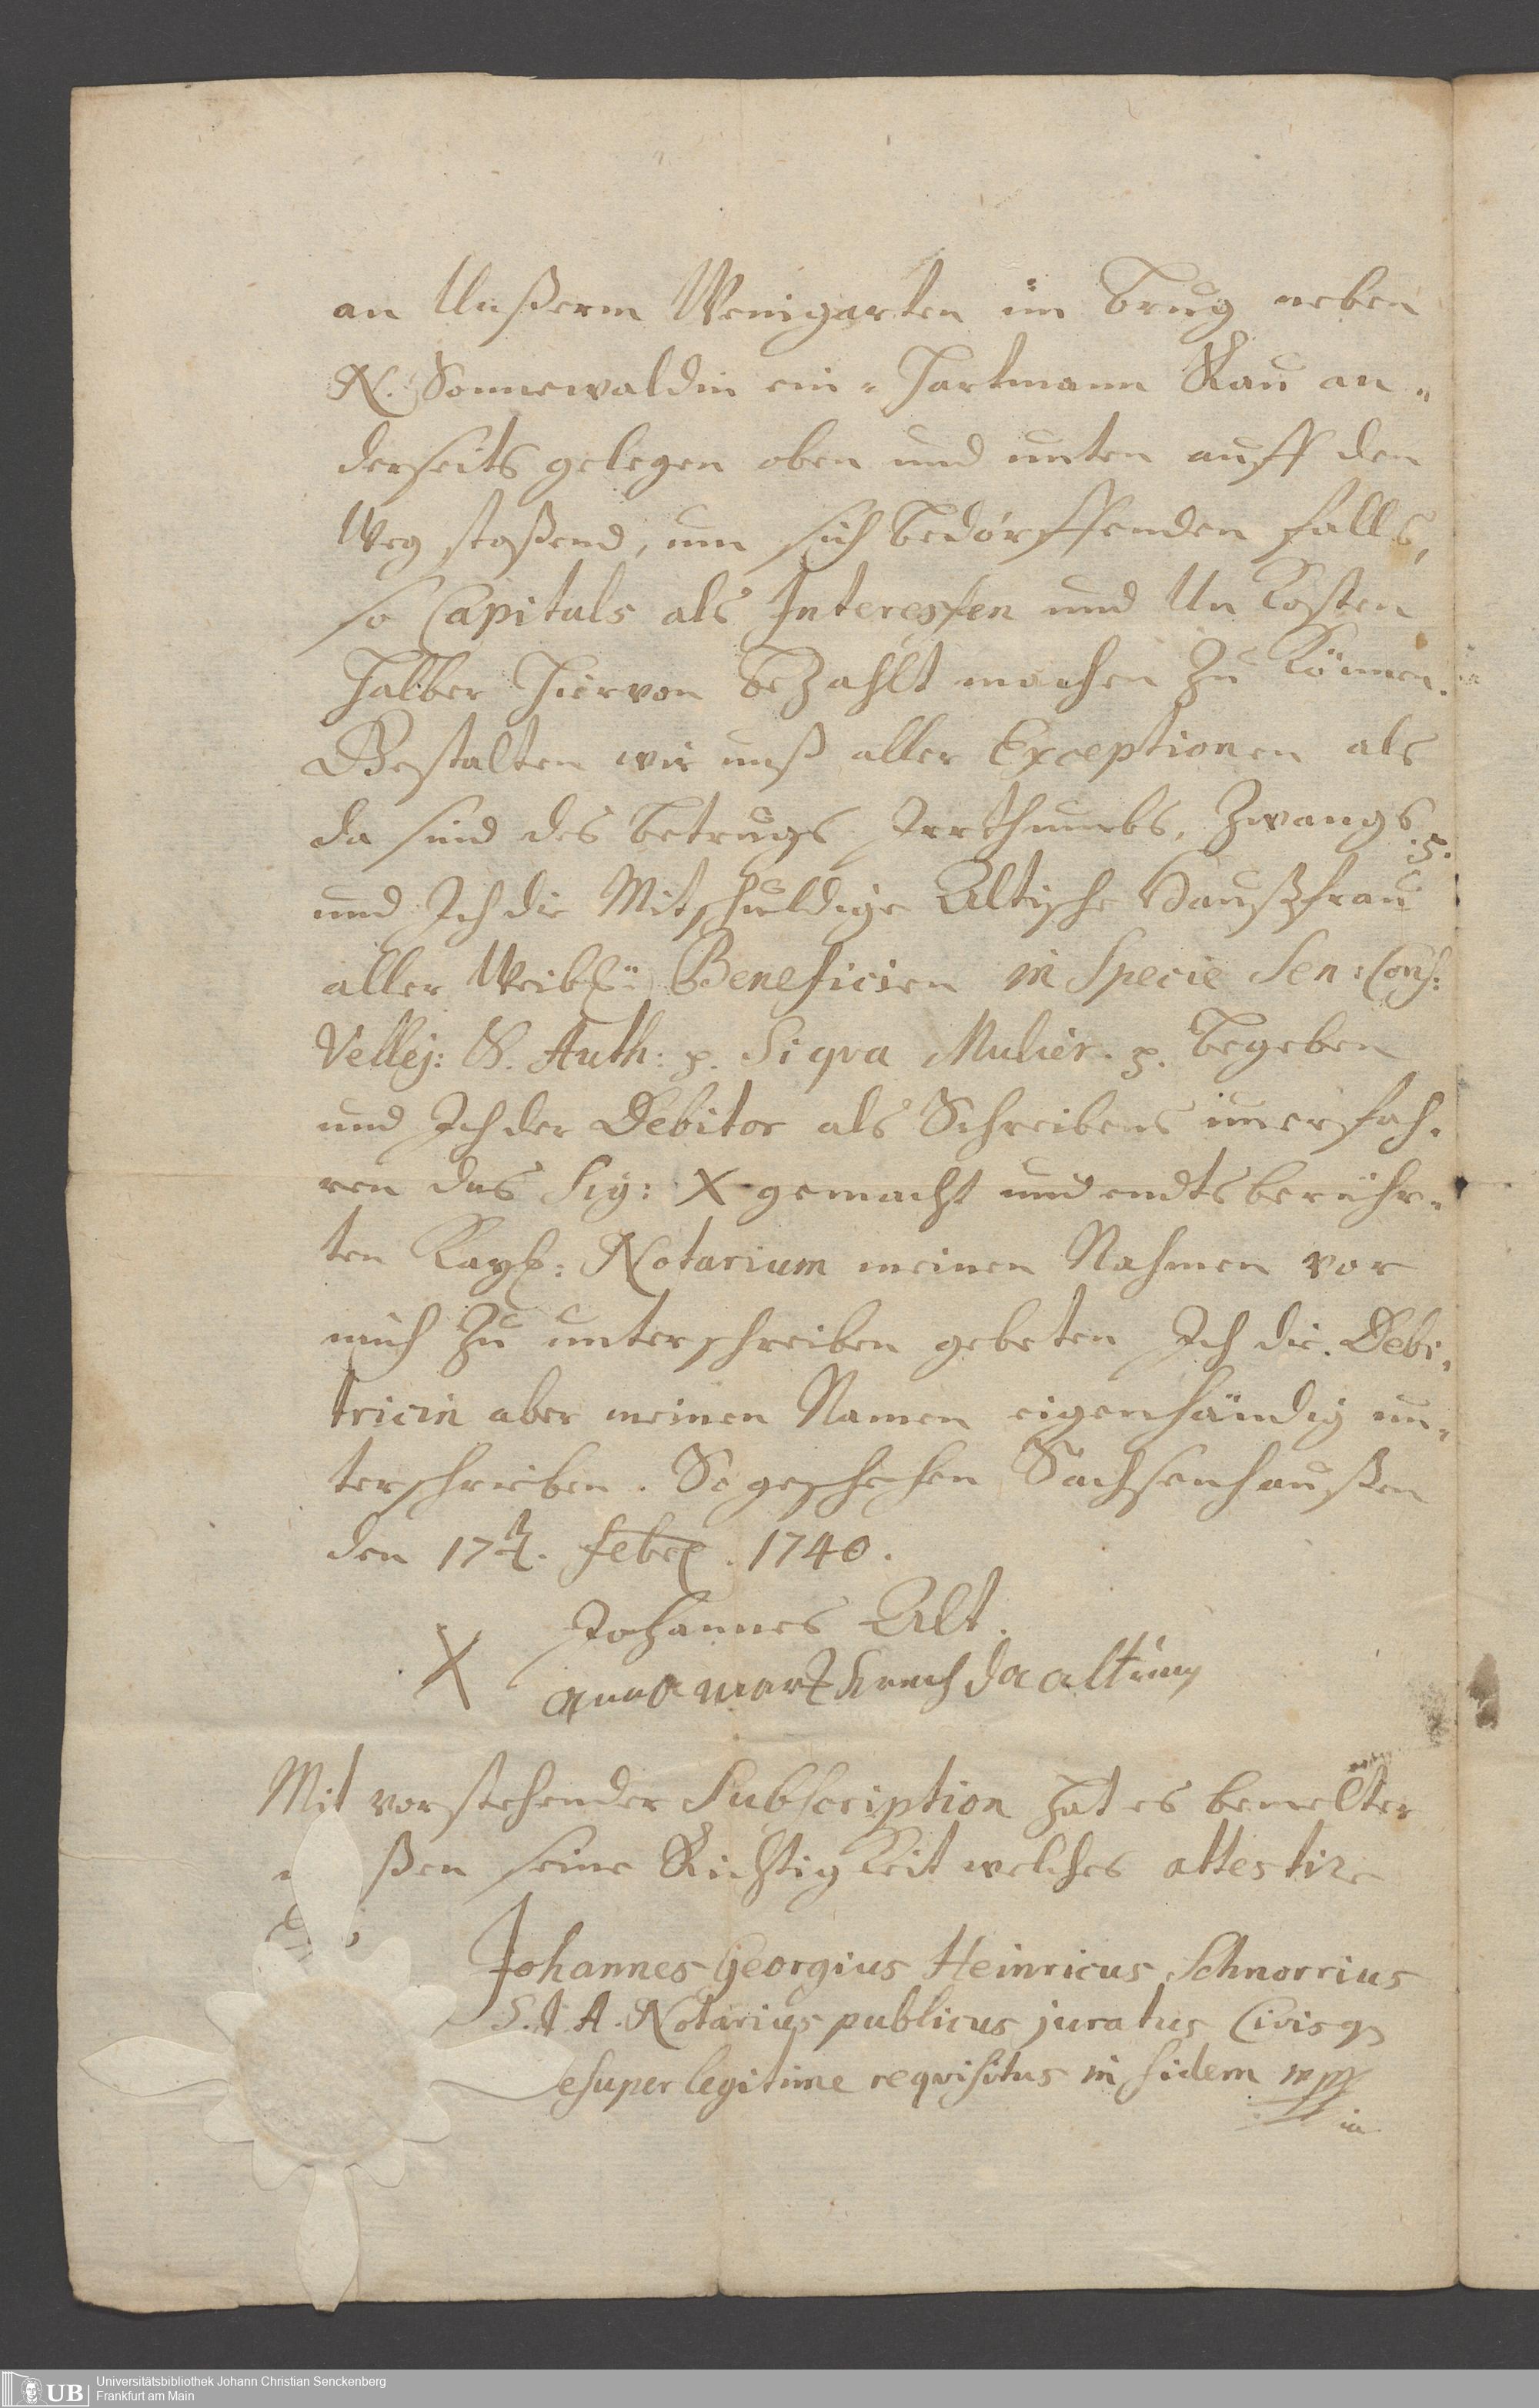 an Unßerm Weingarten im Brug neben
N. Sonnewaldin ein- Hartmann Rau an-
derseits gelegen oben und unten auff den
Weg stoßend, um sich bedörffenden falls,
so Capitals als Interessen und Un Kosten
halber hiervon bezahlt machen zu können.
Gestalten wir unß aller Exceptionen als
da sind des betrugs Irrthumbs, Zwangs p.
und Ich die Mitschuldige Altische Haußfrau
aller Weibl: Beneficien in Specie Sen: Cons:
Vellej: & Auth: p. Siqva Mulier. p. begeben
und Ich der Debitor als Schreibens unerfah-
ren das Sig: X gemacht und endtsberühr-
ten Kayß: Notarium meinen Nahmen vor
mich zu unterschreiben gebeten Ich die Debi-
tricin aber meinen Namen eigenhändig un-
terschrieben. So geschehen Sachsenhaußen
den 17t. Febr. 1740.
Johannes Alt.
X anna
Mit vorstehender Subscription hat es bemelter
ßen seine Richtigkeit welches attestire
Johannes Georgius Heinricus Schnorrius
S. I. A. Notarius publicus juratus Civisq
esuper legitime reqvisitus in fidem mpp
UB Universitätsbibliothek Johann Christian Senckenberg
Frankfurt am Main